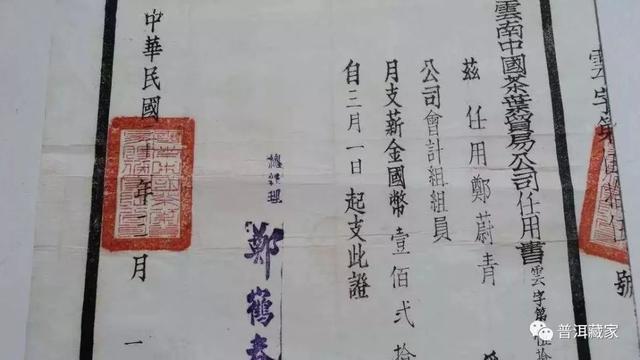 雲字第 伍 號
雲南中國茶葉貿易公司任用書
雲字第伍拾
茲任用鄭蔚青
公司會計組組員
月支薪金國幣壹佰貳拾
自三月一日起支此證
總經理
鄭鶴春
中華民國 年 月 一
普洱藏家